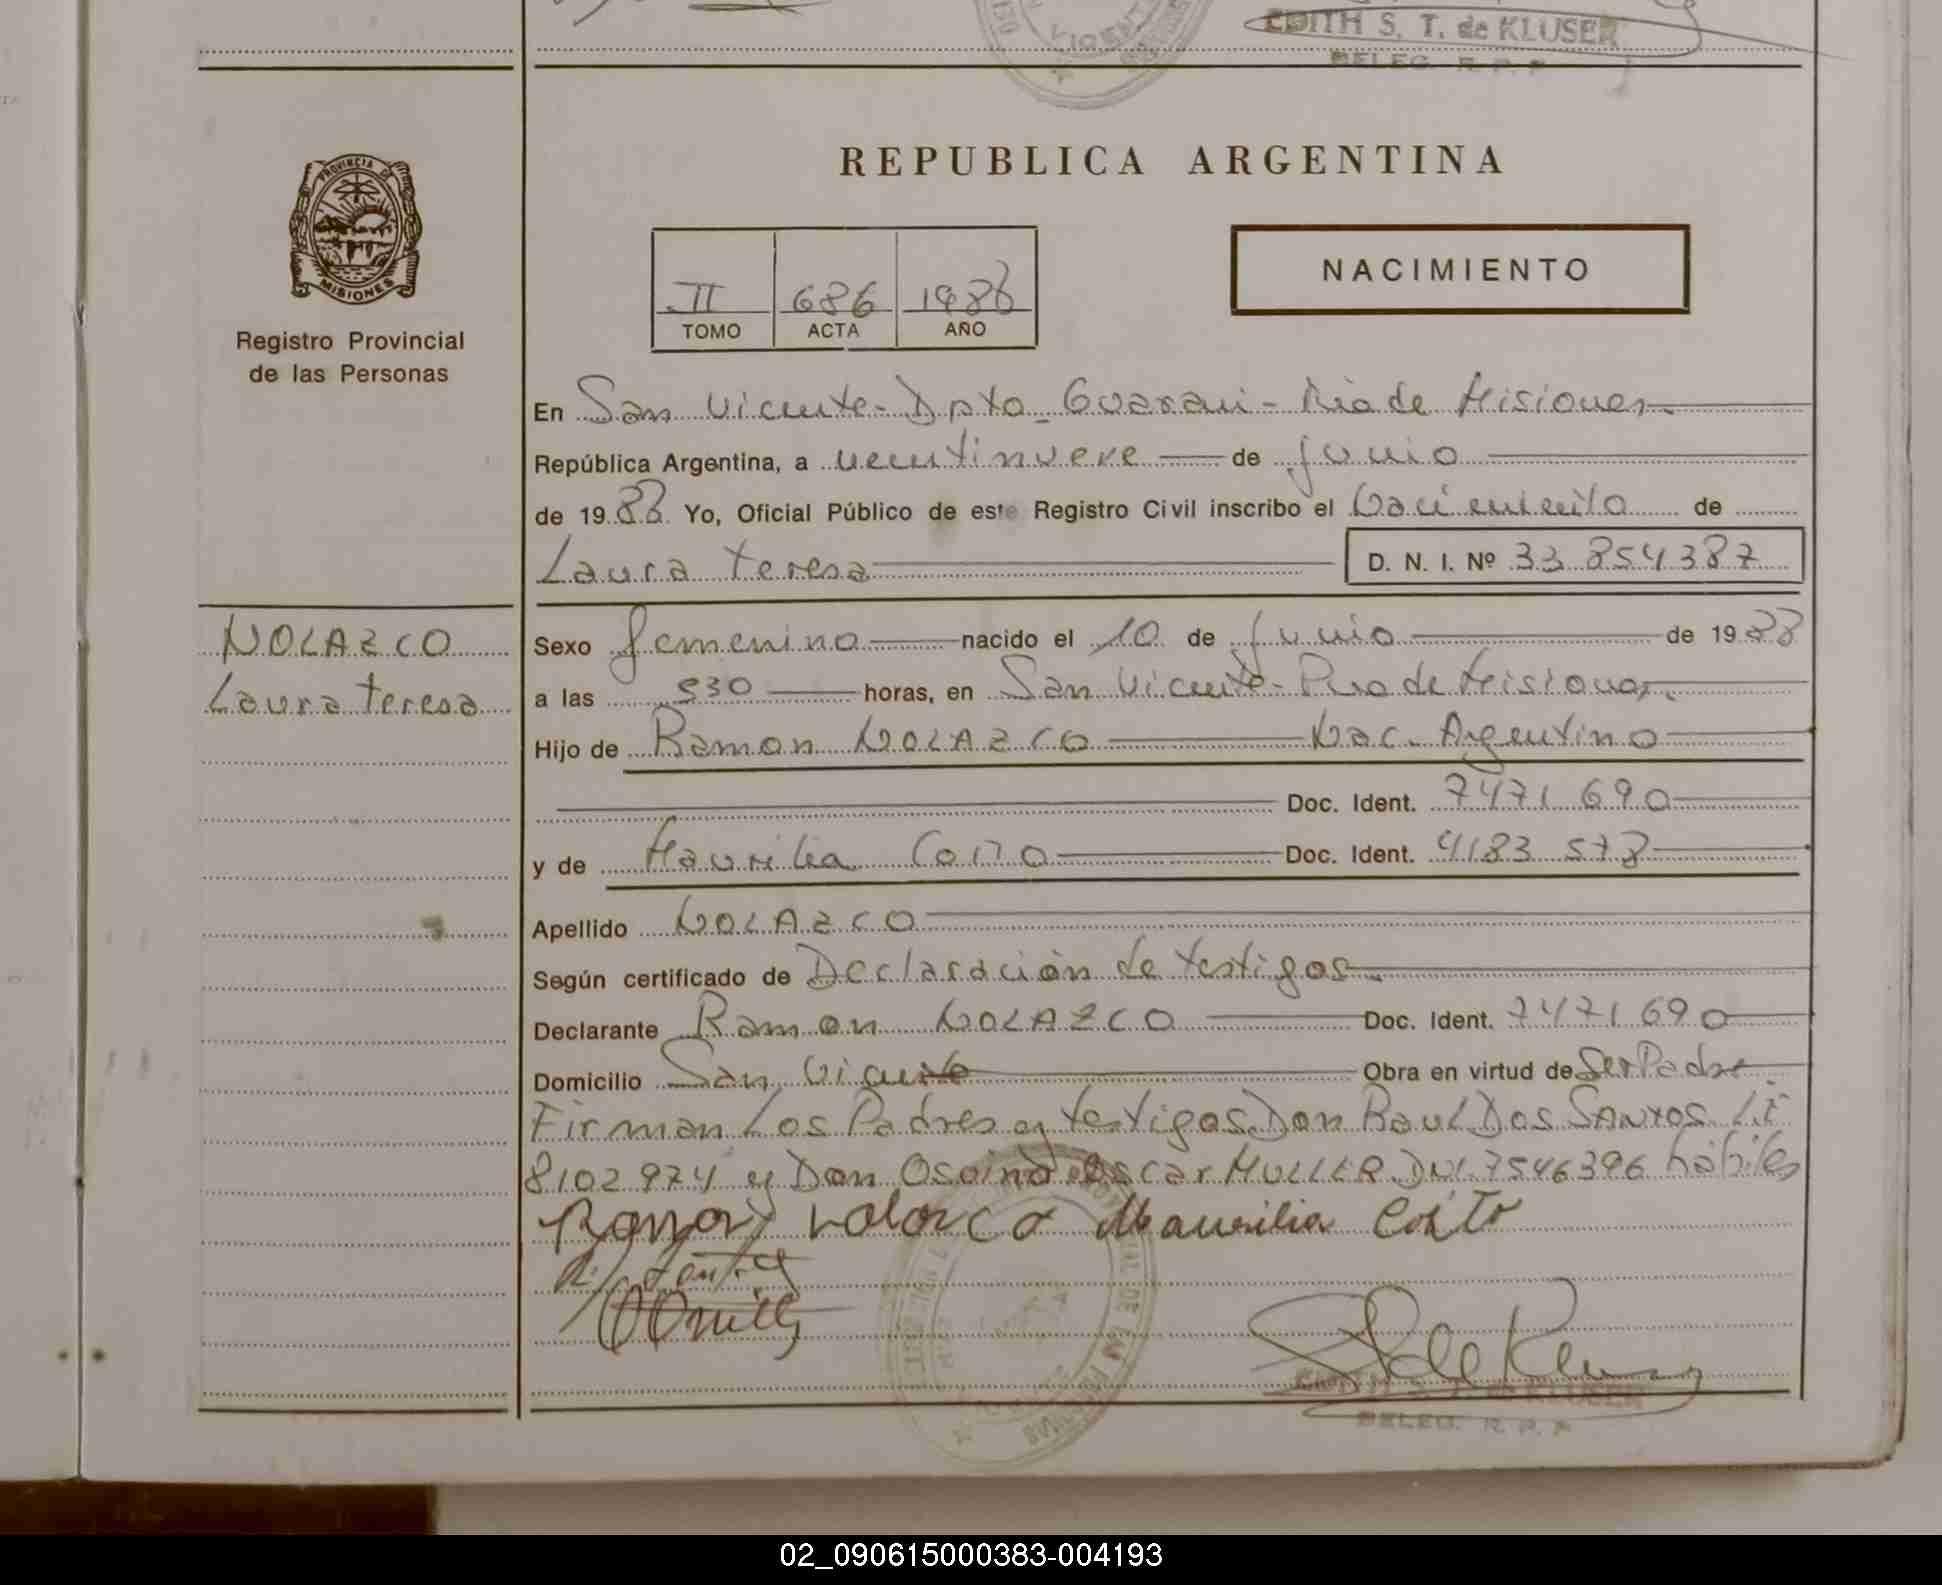 EDITH S. T. de KLUSER
DELEG. R. P. P
REPUBLICA ARGENTINA
PROVINCIA DE
MISIONES
Registro Provincial
de las Personas
NACIMIENTO
II 686 1988
TOMO ACTA AÑO
En San Vicente - Dpto Guarani - Pcia de Misiones.
República Argentina, a veintinueve de Junio
de 1988 Yo, Oficial Público de este Registro Civil inscribo el Nacimiento de
Laura Teresa D. N. I. Nº 33 854387
NOLAZCO
Laura Teresa
Sexo femenino nacido el 10 de Junio de 1988
a las 530 horas, en San Vicente - Pcia de Misiones.
Hijo de Ramon NOLAZCO Nac. Argentino
Doc. Ident. 7471 690
y de Maurilia Coito Doc. Ident. 4183 578
Apellido NOLAZCO
Según certificado de Declaración de testigos.
Declarante Ramon NOLAZCO Doc. Ident. 7471 690
Domicilio San Vicente Obra en virtud de Ser Padre
Firman Los Padres y testigos Don Raul Dos Santos L.E
8102 974 y Don Osoino Oscar MULLER DNI. 7546396 hábiles
Ramon nolasco Maurilia Coito
EDITH S. T. de KLUSER
DELEG. R. P. P
02_090615000383-004193